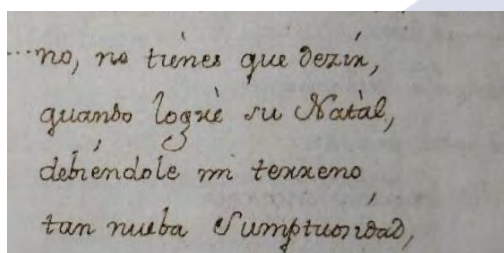 ...no, no tienes que dezir,
quando logrè su Natàl,
debiéndole mi terreno
tan nueba Sumptuosidad,